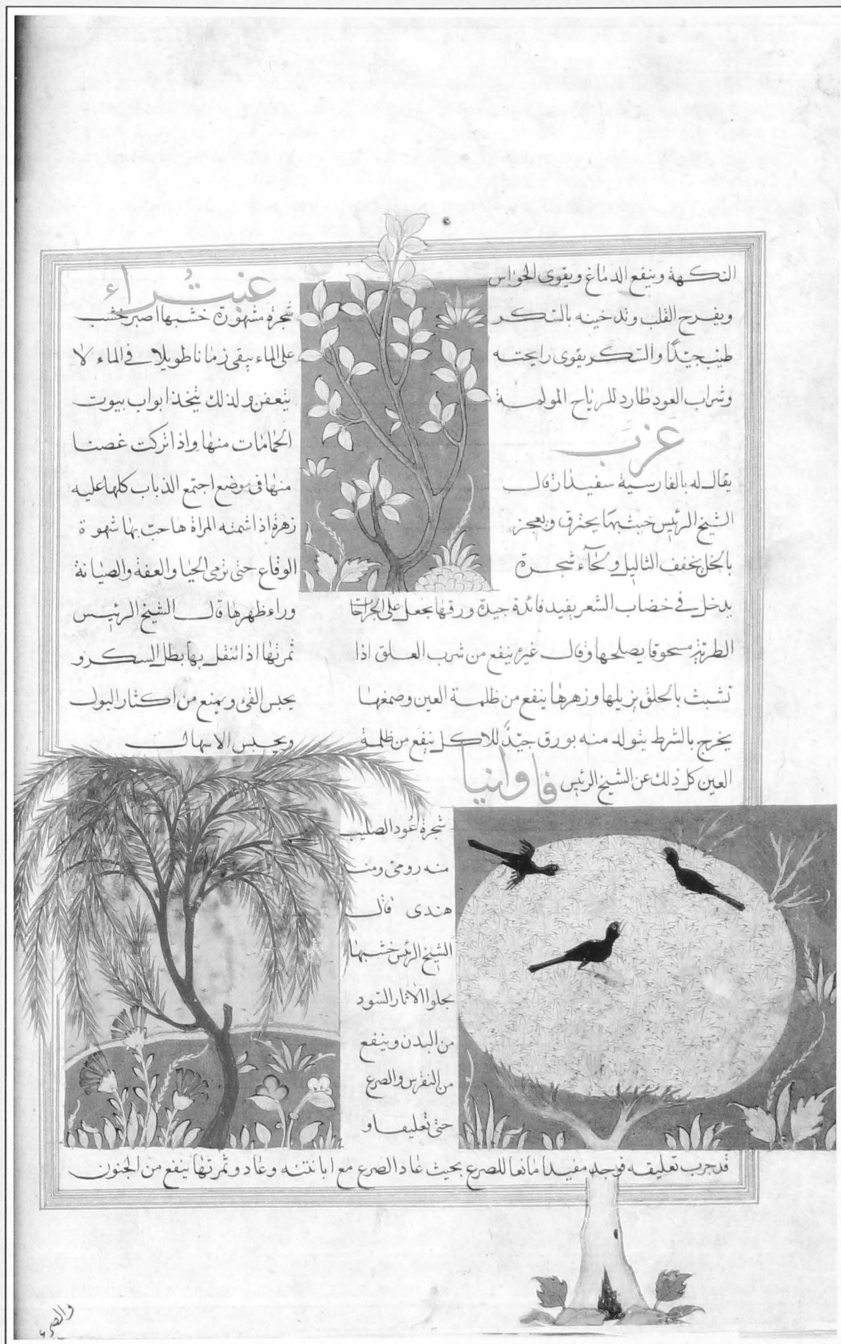 النكهة وينفع الدماغ ويقوى الحواس
ويفرح القلب وتدخينه بالسكر
طيب جيدا والسكر يقوى رايحته
وشراب العود طارد للرياح المولمة
غرب
يقال له بالفارسية سفيدار قال
الشيخ الرئيس خشبها يحترق ويعجن
بالخل يخفف الثاليل ولحاء شجرة
يدخل فى خضاب الشعر يفيد فائدة جيدة ورقها يجعل على الجراحات
الطرية مسحوقا يصلحها وقال غيره ينفع من شرب العلق اذا
تشبث بالحلق يزيلها وزهرها ينفع من ظلمة العين وصمغها
يخرج بالشرط يتولد منه بورق جيد للاكل ينفع من ظلمة
العين كل ذلك عن الشيخ الرئيس
غبيراء
شجرة مشهورة خشبها اصبر خشب
على الماء يبقى زمانا طويلا فى الماء لا
يتعفن ولذلك يتخذ ابواب بيوت
الحمامات منها واذا تركت غصنا
منها فى موضع اجتمع الذباب كلها عليه
زهرة اذا اشمته المراة هاجت بها شهوة
الوقاع حتى ترمى الحيا والعفة والصيانة
وراء ظهرها قال الشيخ الرئيس
ثمرتها اذا انتقل بها بطل السكر و
يحبس القئ ويمنع من اكثار البول
ويحبس الاسهال
فاوانيا
شجرة عود الصليب
منه رومى ومنه
هندى قال
الشيخ الرئيس خشبها
يجلو الاثار السود
من البدن وينفع
من النقرس والصرع
حتى تعليقا و
قد جرب تعليقه فوجد مفيدا مانعا للصرع بحيث عاد الصرع مع ابانته وعاد وثمرتها ينفع من الجنون
والصرع